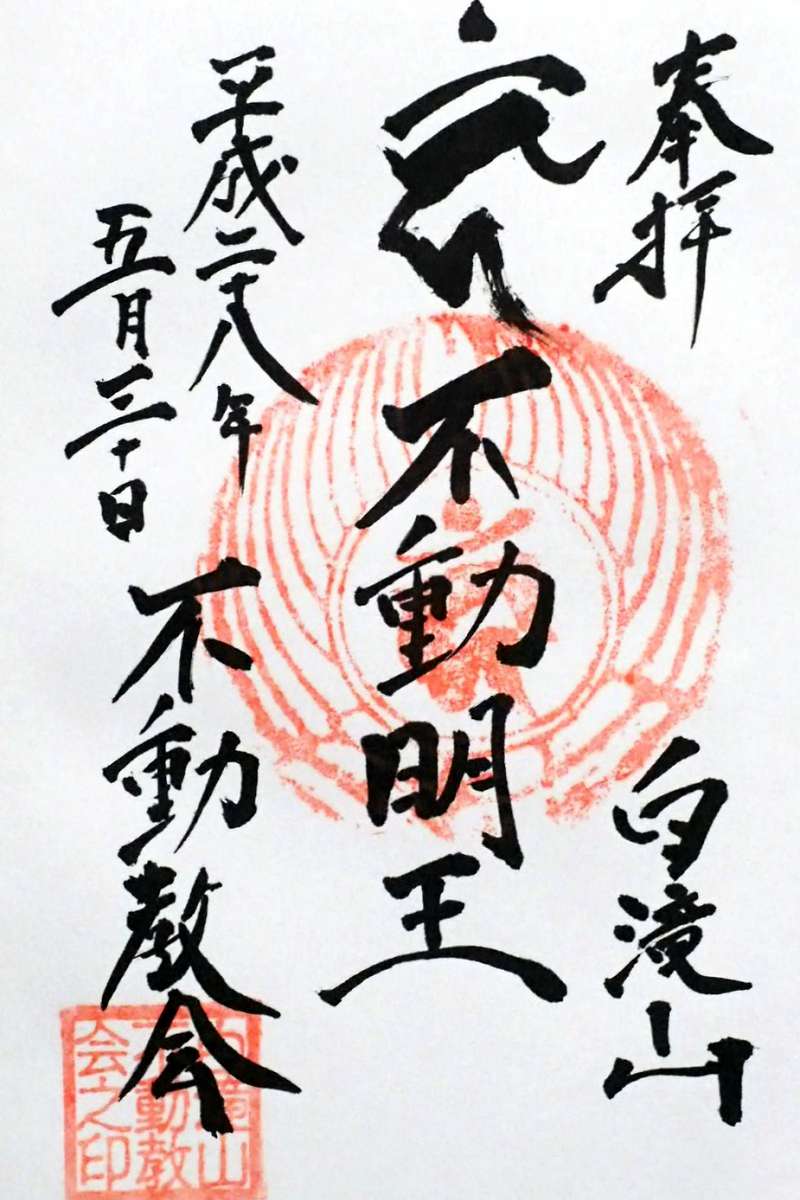 奉拝
白滝山
不動明王
平成二十八年
五月三十日
不動教会
白滝山
不動教
会之印